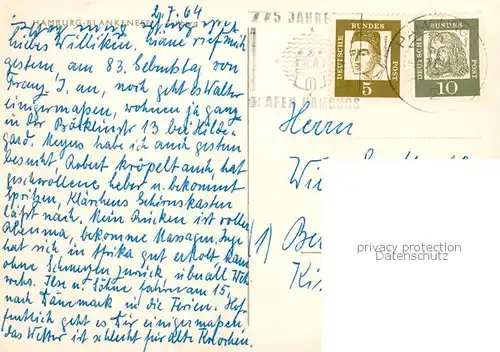 HAMBURG-BLANKENESE
2.7.64
liebes Williken, Liane rief mich
gestern, am 83. Geburtstag von
Franz J. an, noch geht es Walter
einigermaßen, wohnen ja ganz
in der 13 bei Hilde
gard. Meyers habe ich auch gestern
besucht. Robert kröpelt auch, hat
geschwollene Leber u. bekommt
Spritzen, Klärchens Gehirnskasten
läßt nach. Mein Rücken ist voller
Rheuma, bekomme Massagen. Inge
hat sich in Afrika gut erholt, kam
ohne Schmerzen zurück, überall Weh
wehs. Ilse u. Söhne fahren am 15.
nach Dänemark in die Ferien. Hof
fentlich geht es Dir einigermaßen
das Wetter ist schlecht für alte Knochen.
775 JAHRE
HAFEN HAMBURG
DEUTSCHE BUNDES POST
5
DEUTSCHE BUNDES POST
10
Herrn
Wi
(1) Be
Ki
privacy protection